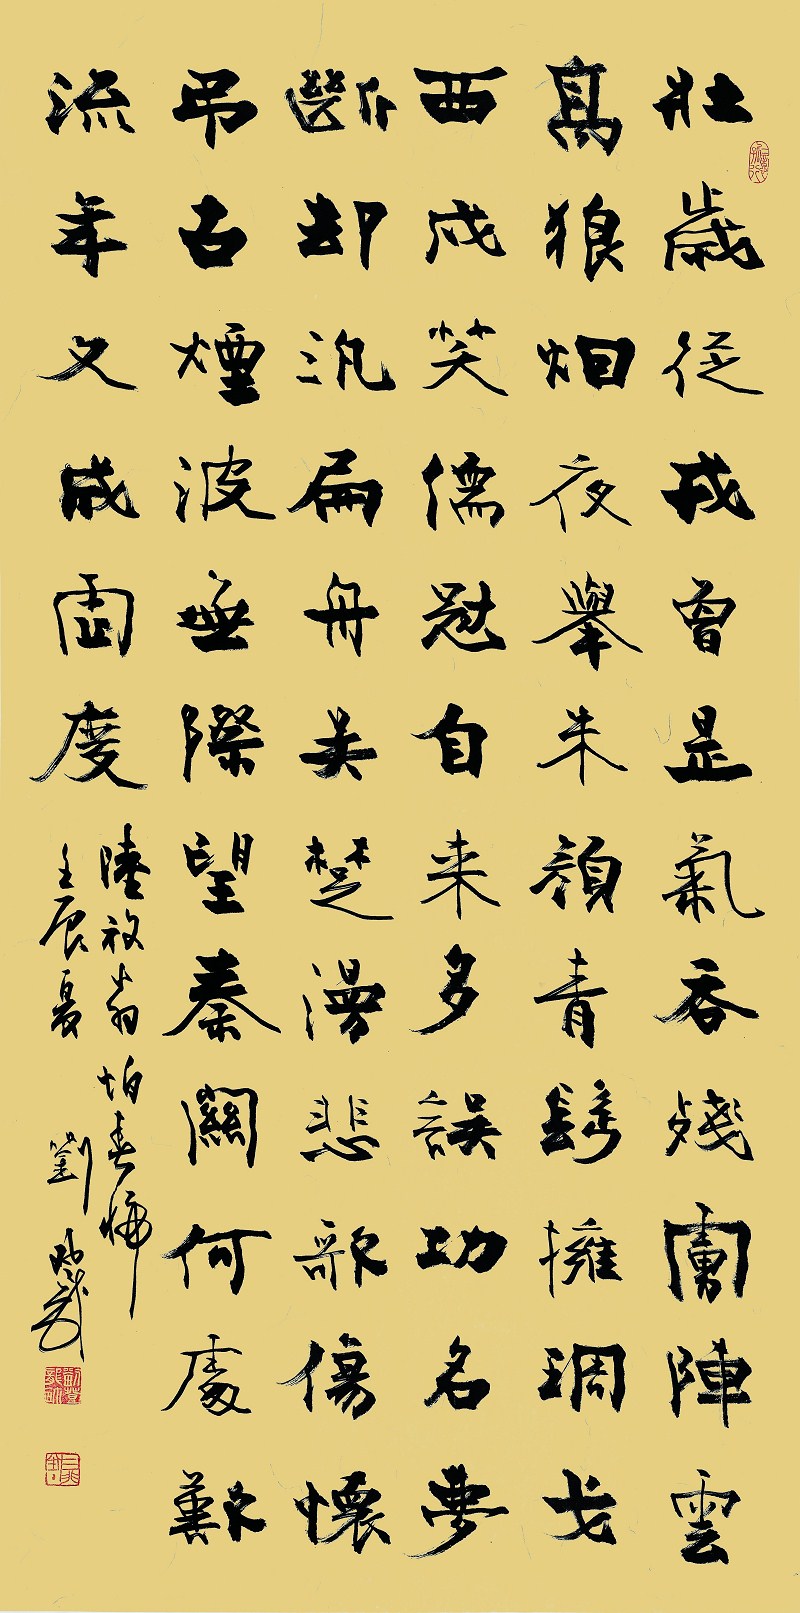 壯歲從戎曾是氣吞殘虜陣雲
高狼烟夜舉朱顔青鬢擁琱戈
西戍笑儒冠自来多誤功名夢
斷却汎扁舟吴楚漫悲歌傷懷
吊古煙波無際望秦關何處歎
流年又成虛度
陸放翁 怕春歸
壬辰夏 劉